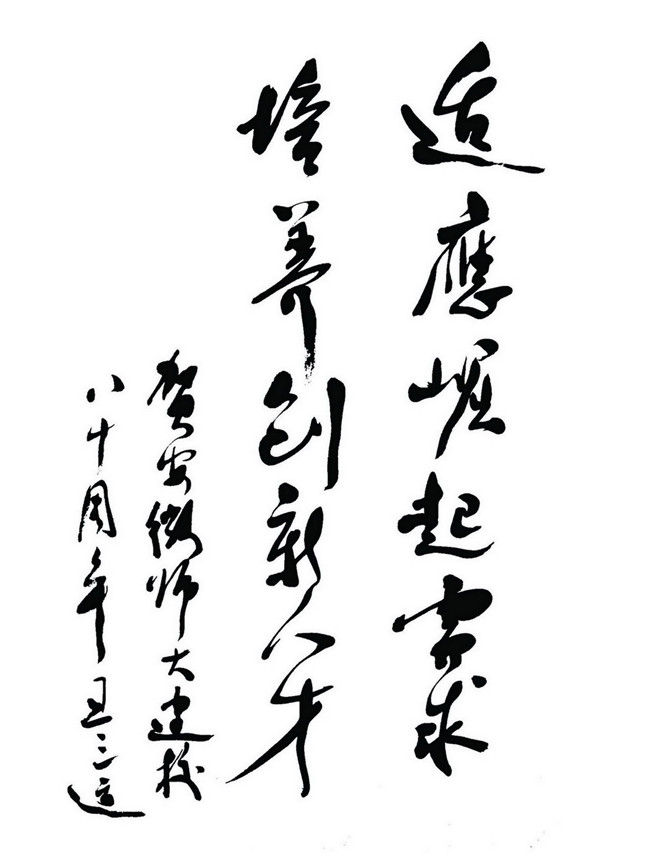 适應崛起需求
培养创新人才
贺安徽师大建校
八十周年 王三运